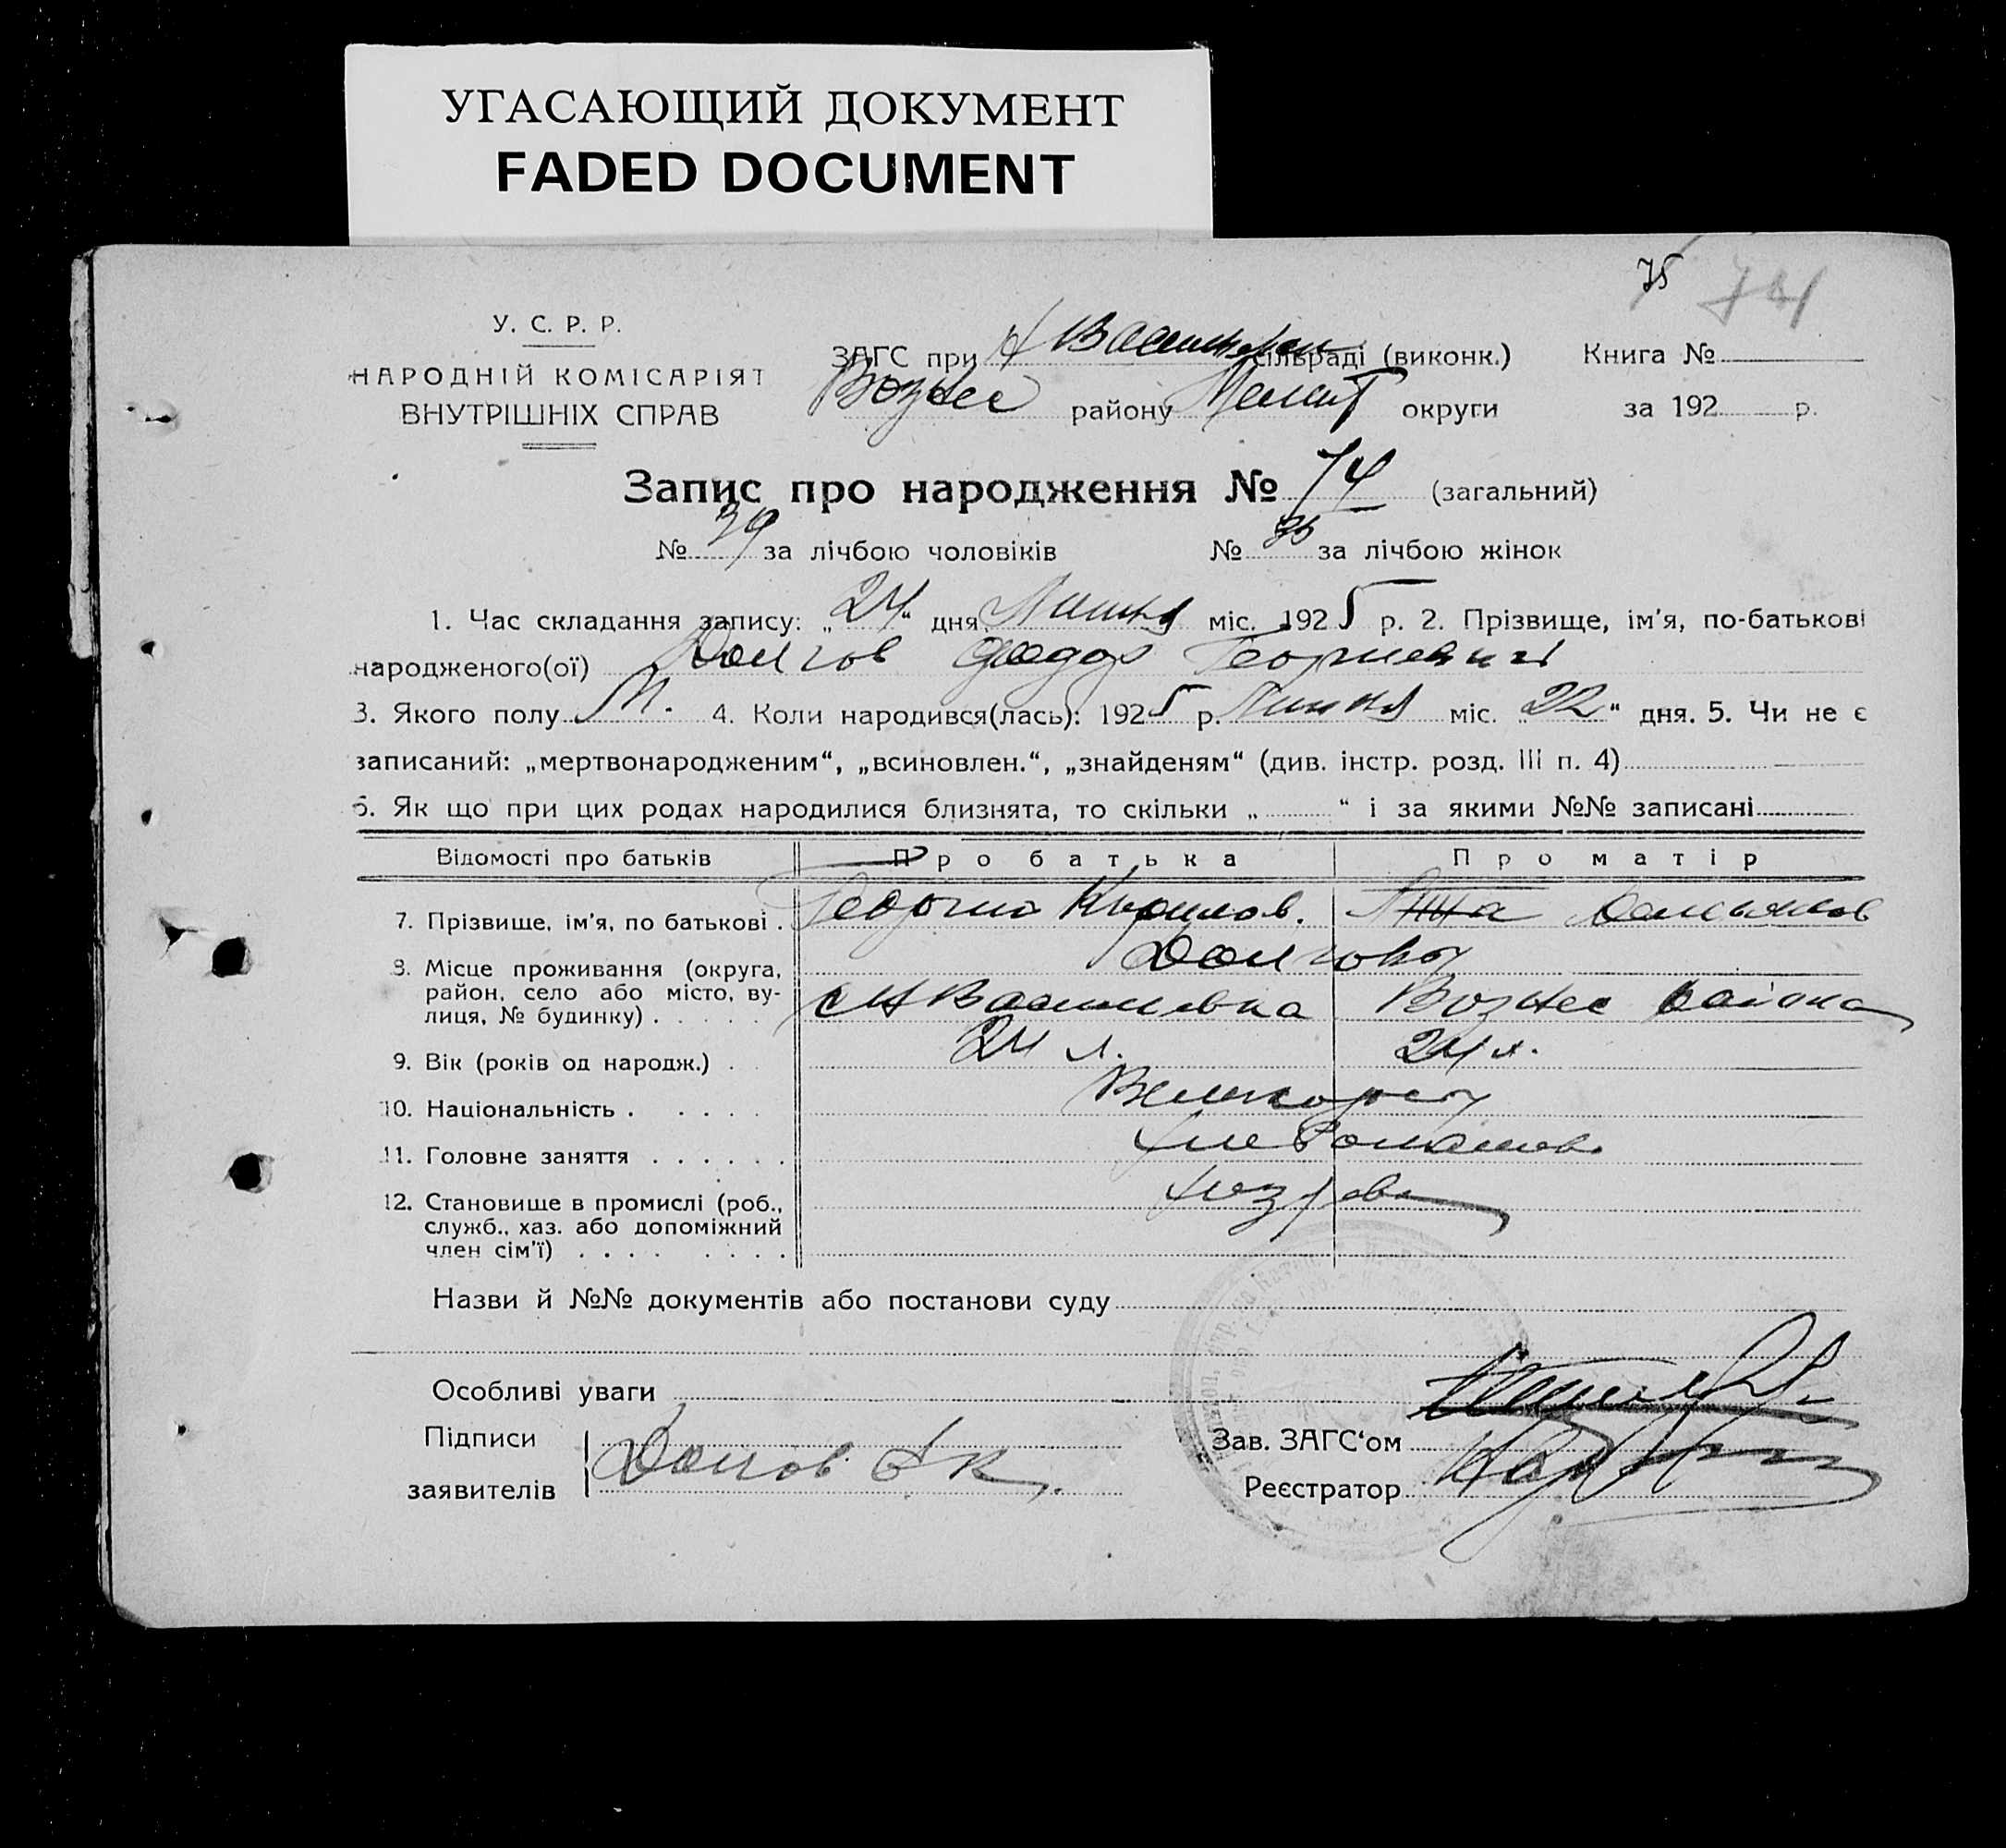 УГАСАЮЩИЙ ДОКУМЕНТ
FADED DOCUMENT
75 74
У. С. Р. Р.
НАРОДНІЙ КОМІСАРІЯТ
ВНУТРІШНІХ СПРАВ
ЗАГС при Н Васильевск сільраді (виконк.) Книга №
Вознес району Мелит округи за 192 р.
Запис про народження № 74 (загальний)
№ 39 за лічбою чоловіків № 35 за лічбою жінок
1. Час складання запису: „24“ дня Липня міс. 1925 р. 2. Прізвище, ім'я, по-батькові
народженого(ої) Долгов Федор Георгиевич
3. Якого полу М. 4. Коли народився(лась): 1925 р. Липня міс. „22“ дня. 5. Чи не є
записаний: „мертвонародженим“, „всиновлен.“, „знайденям“ (див. інстр. розд. III п. 4)
6. Як що при цих родах народилися близнята, то скільки „ “ і за якими №№ записані
Відомості про батьків Про батька Про матір
7. Прізвище, ім'я, по батькові . Георгий Кирилов. Анна
Долговы
8. Місце проживання (округа,
район, село або місто, ву-
лиця, № будинку) . . . . . с Н Васильевка Вознес района
9. Вік (років од народж.) . . 24 л. 24 л.
10. Національність . . . . . Великорос
11. Головне заняття . . . . . .
12. Становище в промислі (роб.,
служб., хаз. або допоміжний
член сім'ї) . . . . . . . .
Назви й №№ документів або постанови суду
Особливі уваги
Підписи
заявителів Долгов Г К
Зав. ЗАГС‘ом
Реєстратор